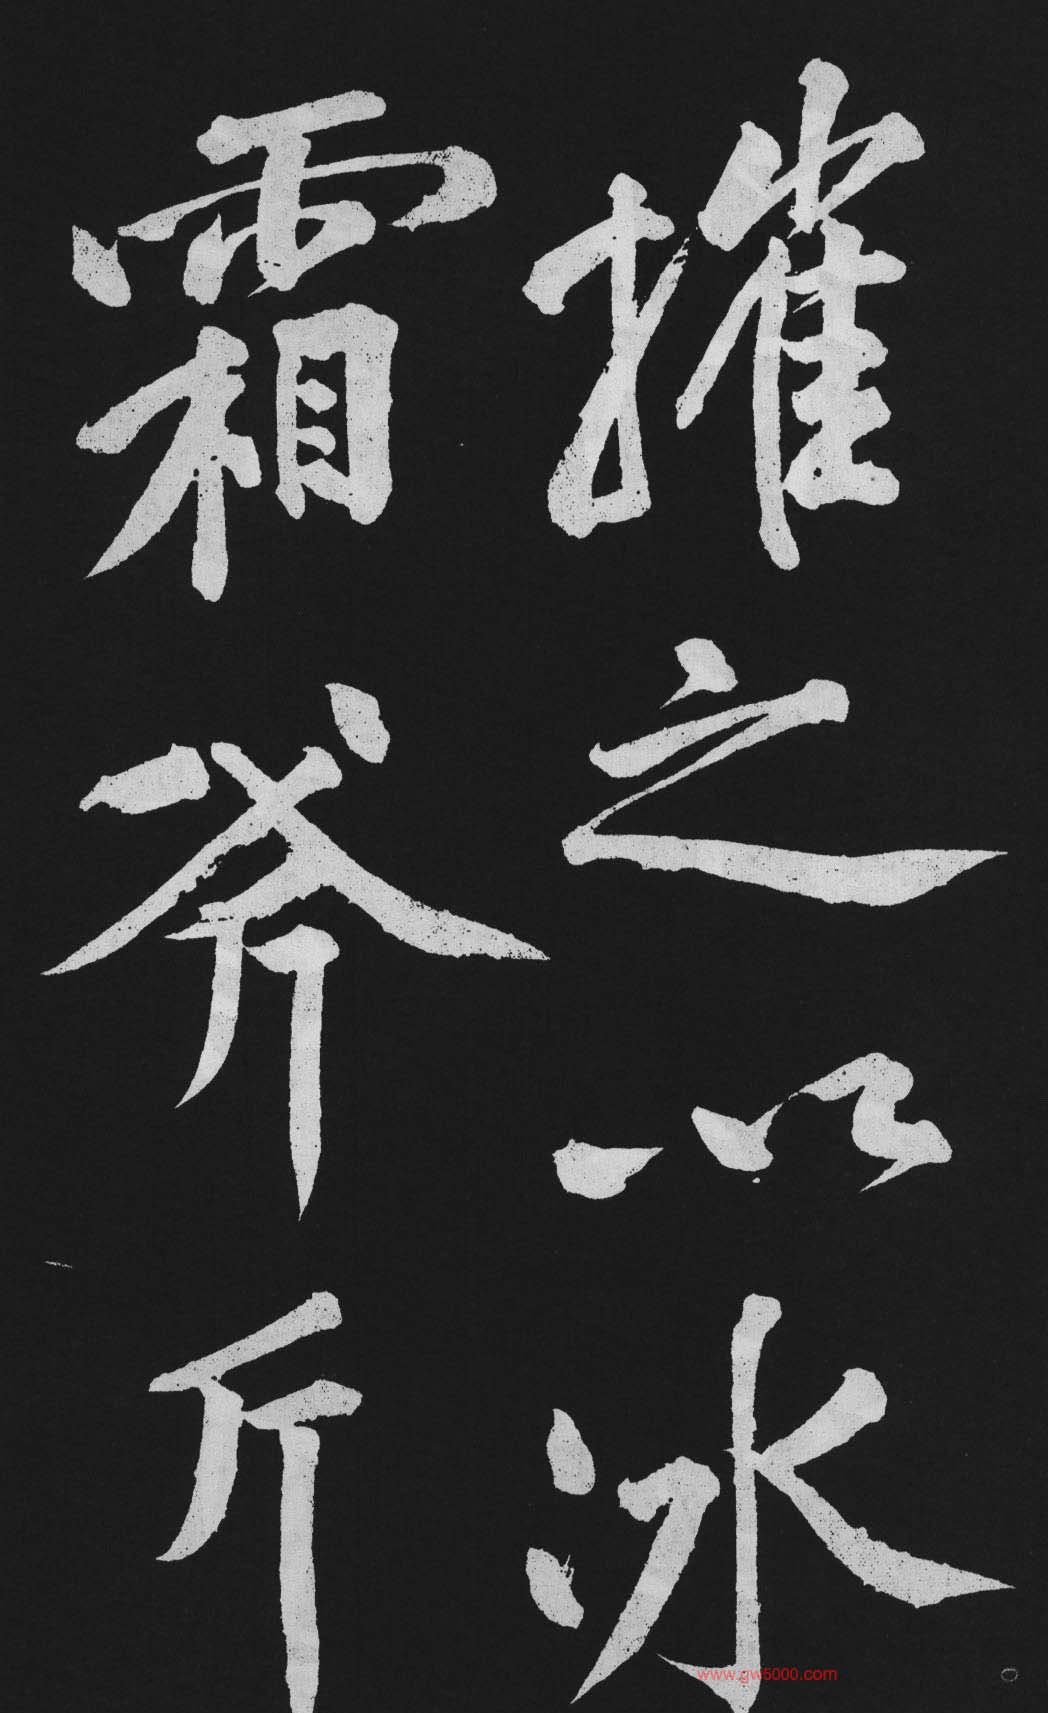 摧之以冰
霜斧斤
www.gw5000.com